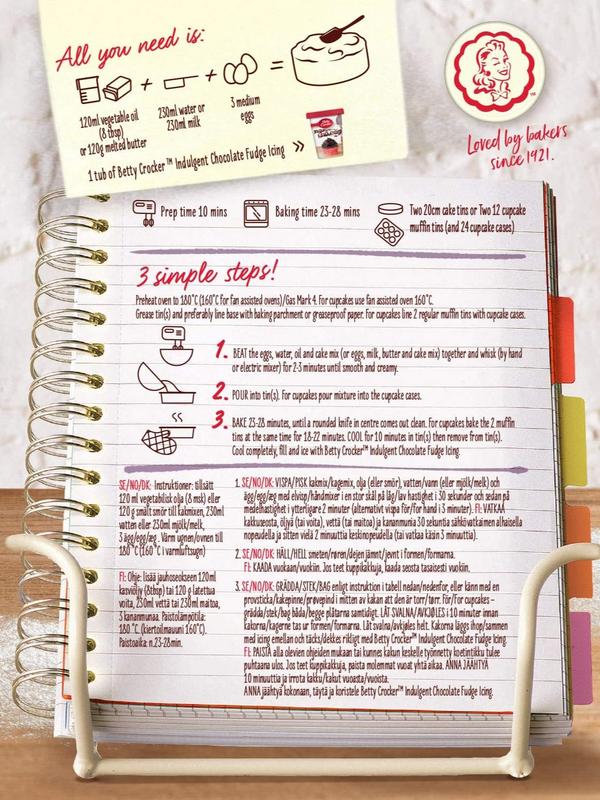 All you need is:
120ml vegetable oil
(8 tbsp)
or 120g melted butter
+
230ml water or
230ml milk
+
3 medium
eggs
=
1 tub of Betty Crocker™ Indulgent Chocolate Fudge Icing »
Betty Crocker
Loved by bakers
since 1921.
Prep time 10 mins
Baking time 23-28 mins
Two 20cm cake tins or Two 12 cupcake
muffin tins (and 24 cupcake cases)
3 simple steps!
Preheat oven to 180°C (160°C for fan assisted ovens)/Gas Mark 4. For cupcakes use fan assisted oven 160°C.
Grease tin(s) and preferably line base with baking parchment or greaseproof paper. For cupcakes line 2 regular muffin tins with cupcake cases.
1. BEAT the eggs, water, oil and cake mix (or eggs, milk, butter and cake mix) together and whisk (by hand
or electric mixer) for 2-3 minutes until smooth and creamy.
2. POUR into tin(s). For cupcakes pour mixture into the cupcake cases.
3. BAKE 23-28 minutes, until a rounded knife in centre comes out clean. For cupcakes bake the 2 muffin
tins at the same time for 18-22 minutes. COOL for 10 minutes in tin(s) then remove from tin(s).
Cool completely, fill and ice with Betty Crocker™ Indulgent Chocolate Fudge Icing.
SE/NO/DK: Instruktioner: tillsätt
120 ml vegetabilisk olja (8 msk) eller
120 g smält smör till kakmixen, 230ml
vatten eller 230ml mjölk/melk,
3 ägg/egg/æg. Värm ugnen/ovnen till
180°C (160°C i varmluftsugn)
FI: Ohje: lisää jauhoseokseen 120ml
kasviöljy (8tbsp) tai 120 g latettua
voita, 230ml vettä tai 230ml maitoa,
3 kananmunaa. Paistolämpötila:
180°C. (kiertoilmauuni 160°C).
Paistoaika: n.23-28min.
1. SE/NO/DK: VISPA/PISK kakmix/kagemix, olja (eller smör), vatten/vann (eller mjölk/melk) och
ägg/egg/æg med elvisp/håndmixer i en stor skål på låg/lav hastighet i 30 sekunder och sedan på
medelhastighet i ytterligare 2 minuter (alternativt vispa för/for hand i 3 minuter). FI: VATKAA
kakkuseosta, öljyä (tai voita), vettä (tai maitoa) ja kananmunia 30 sekuntia sähkövatkaimen alhaisella
nopeudella ja sitten vielä 2 minuuttia keskinopeudella (tai vatkaa käsin 3 minuuttia).
2. SE/NO/DK: HÄLL/HELL smeten/røren/dejen jämnt/jevnt i formen/formarna.
FI: KAADA vuokaan/vuokiin. Jos teet kuppikakkuja, kaada seosta tasaisesti vuokiin.
3. SE/NO/DK: GRÄDDA/STEK/BAG enligt instruktion i tabell nedan/nedenfor, eller känn med en
provsticka/kakepinne/prøvepind i mitten av kakan att den är torr/tørr. För/For cupcakes –
grädda/stek/bag båda/begge plåtarna samtidigt. LÅT SVALNA/AVKJØLES i 10 minuter innan
kakorna/kagerne tas ur formen/formarna. Låt svalna/avkjøles helt. Kakorna läggs ihop/sammen
med icing emellan och täcks/dekkes riktigt med Betty Crocker™ Indulgent Chocolate Fudge Icing.
FI: PAISTA alla olevien ohjeiden mukaan tai kunnes kakun keskelle työnnetty koetintikku tulee
puhtaana ulos. Jos teet kuppikakkuja, paista molemmat vuoat yhtä aikaa. ANNA JÄÄHTYÄ
10 minuuttia ja irrota kakku/kakut vuoasta/vuoista.
ANNA jäähtyä kokonaan, täytä ja koristele Betty Crocker™ Indulgent Chocolate Fudge Icing.